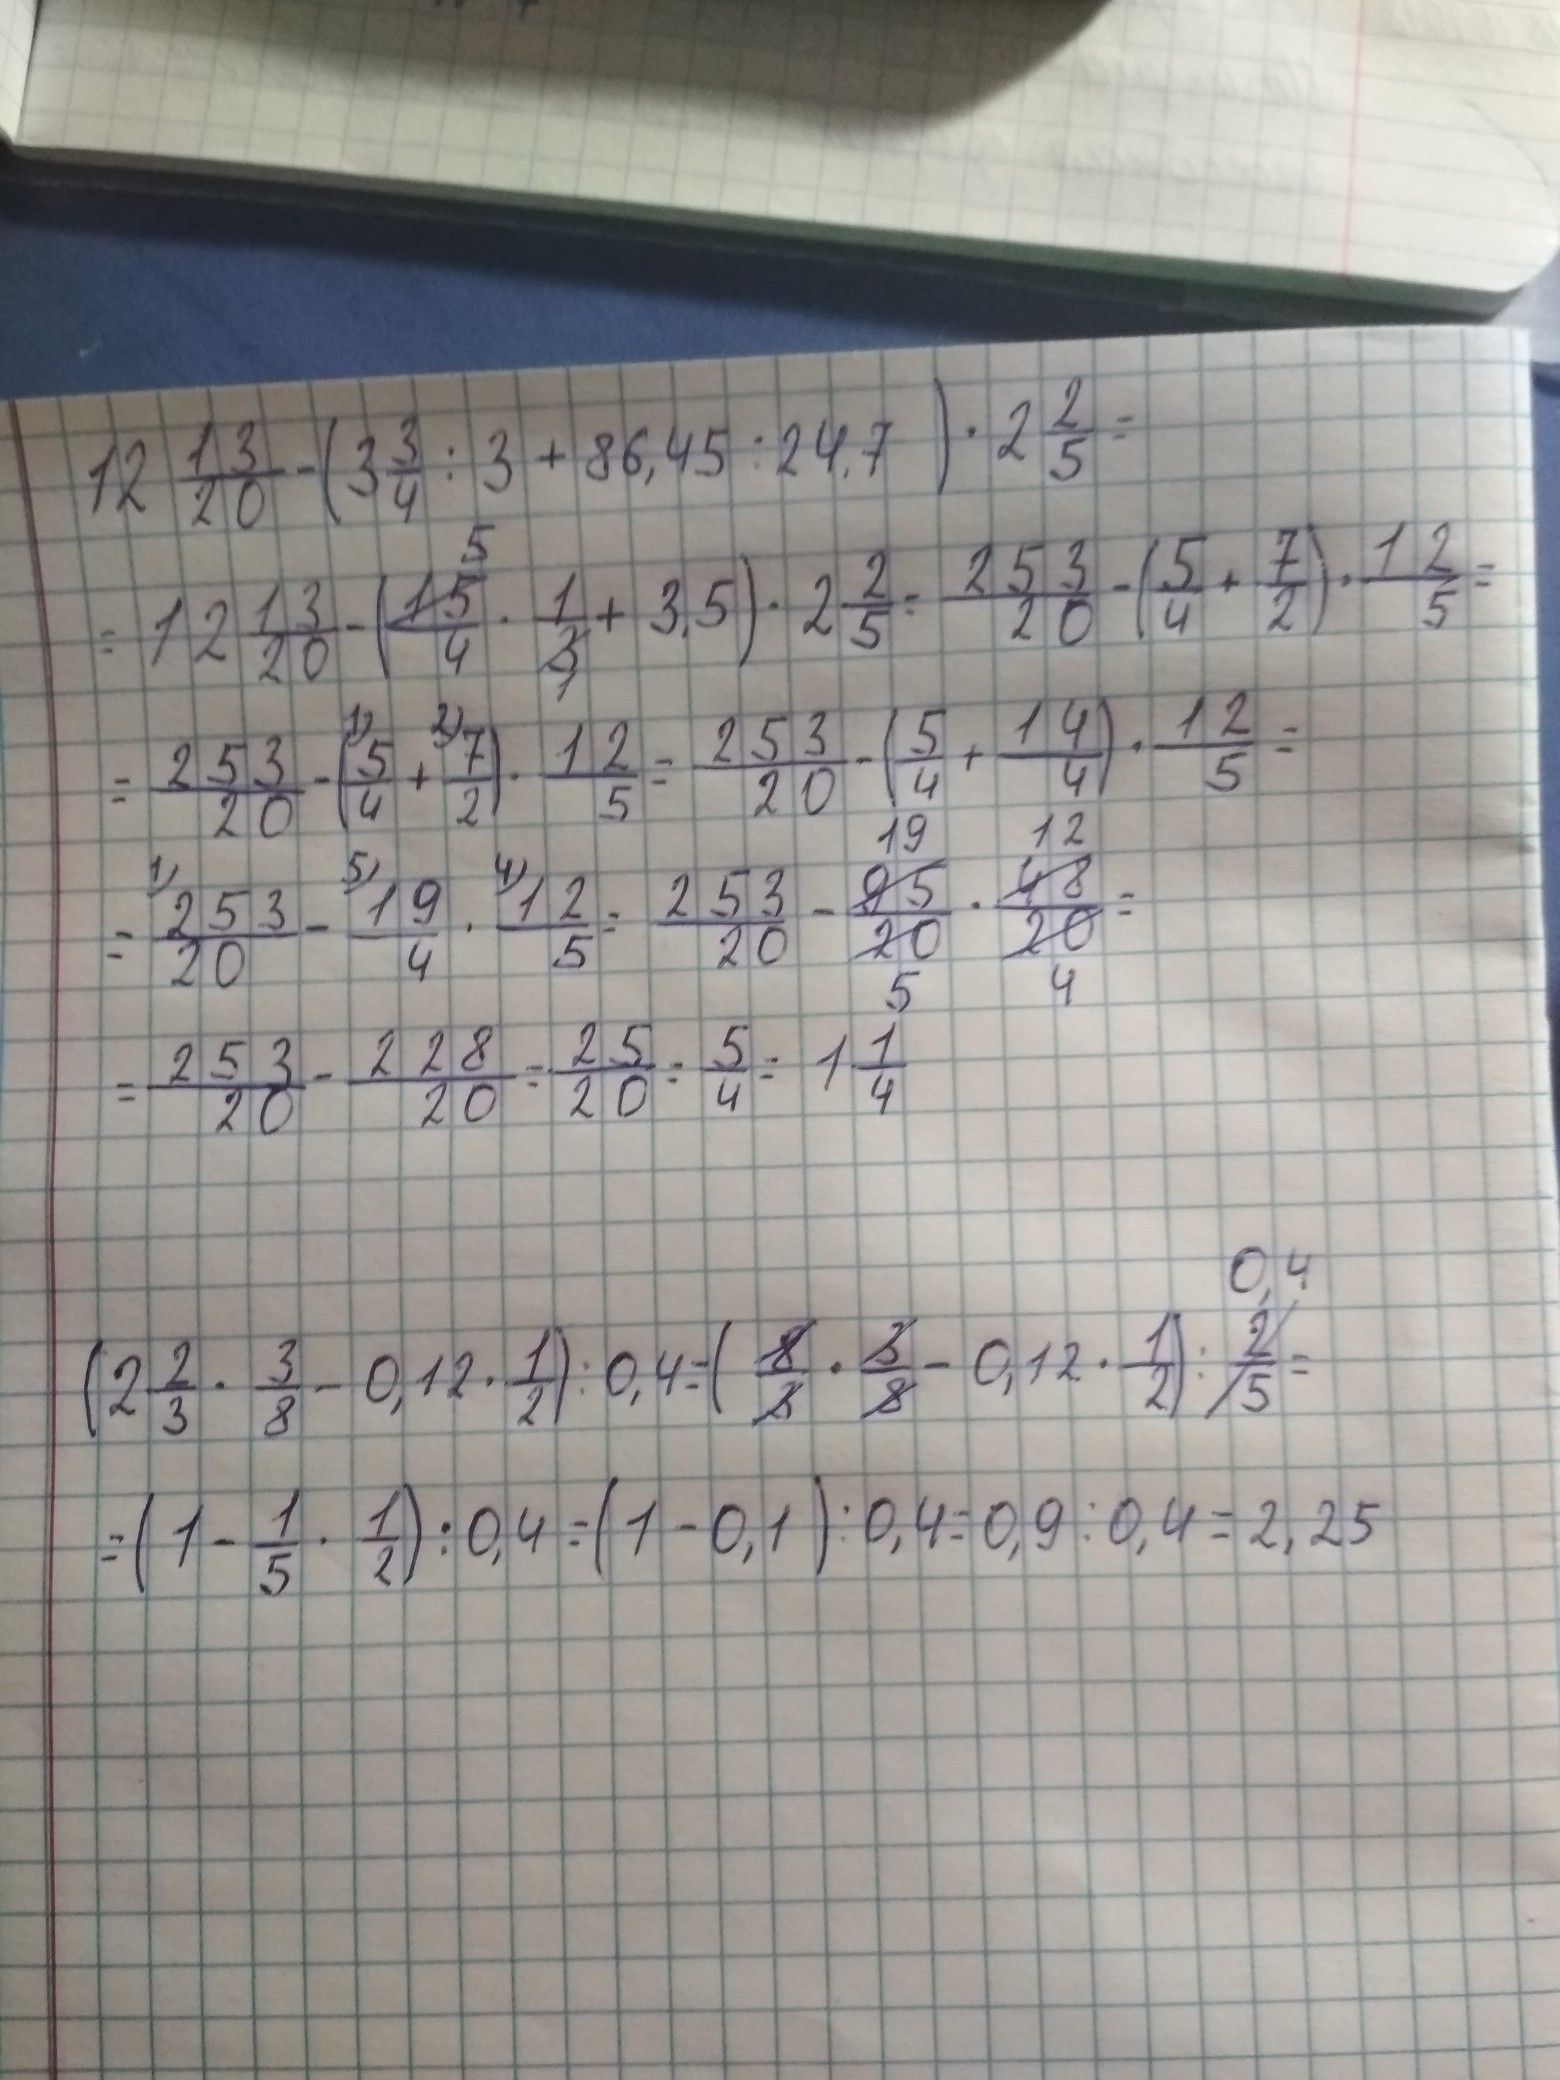 12 13/20 - (3 3/4 : 3 + 86,45 : 24,7) · 2 2/5 =
= 12 13/20 - (15/4 · 1/3 + 3,5) · 2 2/5 = 253/20 - (5/4 + 7/2) · 12/5 =
= 253/20 - (5/4 + 7/2) · 12/5 = 253/20 - (5/4 + 14/4) · 12/5 =
= 253/20 - 19/4 · 12/5 = 253/20 - 95/20 · 48/20 =
= 253/20 - 228/20 = 25/20 = 5/4 = 1 1/4
(2 2/3 · 3/8 - 0,12 · 1/2) : 0,4 = (8/3 · 3/8 - 0,12 · 1/2) : 2/5 0,4 =
= (1 - 1/5 · 1/2) : 0,4 = (1 - 0,1) : 0,4 = 0,9 : 0,4 = 2,25